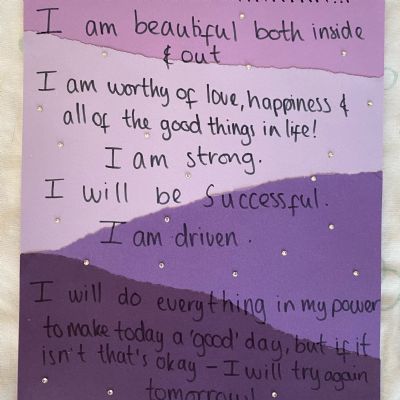 I am beautiful both inside
& out
I am worthy of love, happiness &
all of the good things in life!
I am strong.
I will be Successful.
I am driven.
I will do everything in my power
to make today a 'good' day, but if it
isn't that's okay - I will try again
tomorrow!